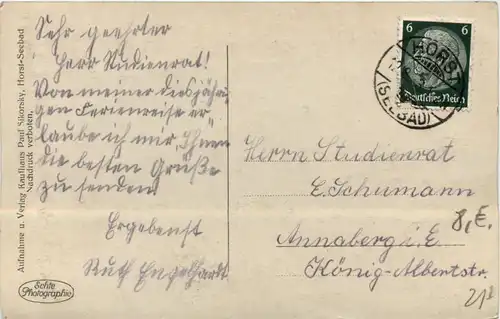 Sehr geehrter
Herr Studienrat!
Von meiner diesjähri-
gen Ferienreise er-
laube ich mir, Ihnen
die besten Grüße
zu senden.
Ergebenst
Ruth Engelhardt
Aufnahme u. Verlag Kaufhaus Paul Sikorsky, Horst-Seebad
Nachdruck verboten.
Echte
Photographie
6 6
Deutsches Reich
HORST
(SEEBAD)
Herrn Studienrat
E. Schumann
Annaberg i. E.
König-Albertstr.